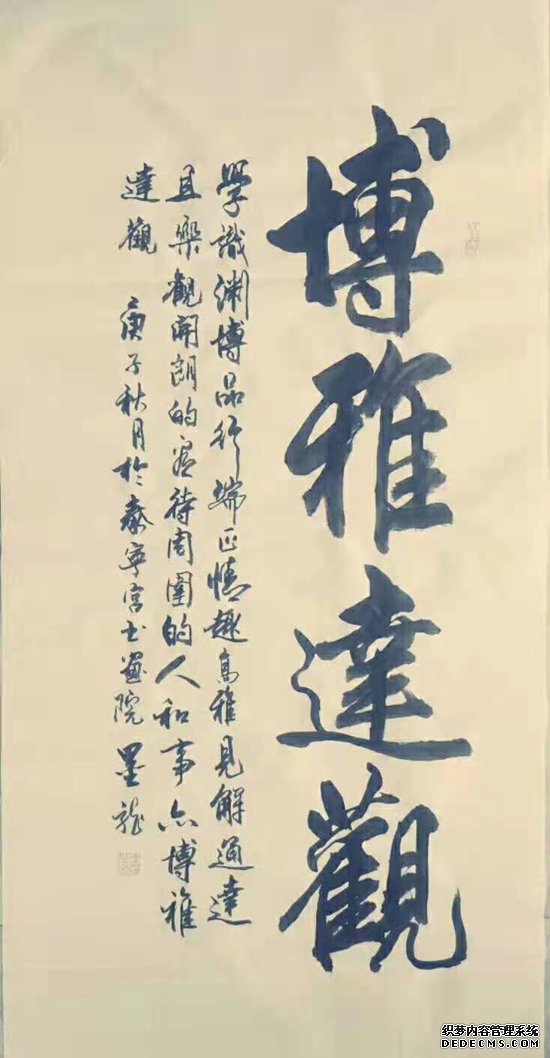 博雅達觀
學識渊博品行端正情趣高雅見解通達
且樂觀開朗的看待周圍的人和事亦博雅
達觀 庚子秋月於泰寧宫书畫院 墨龍
织梦内容管理系统
DEDECMS.COM